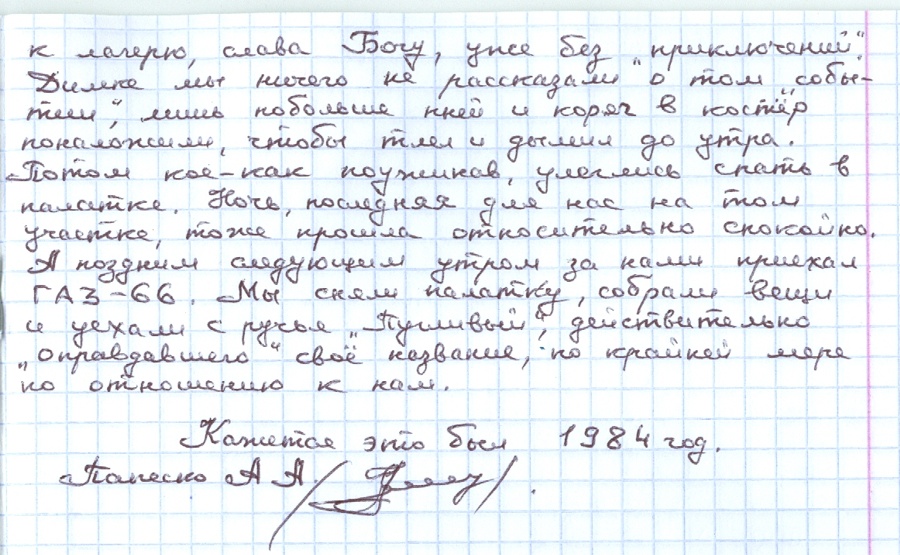 к лагерю, слава Богу, уже без „приключений".
Димке мы ничего не рассказали о том „собы-
тии", лишь побольше пней и коряг в костёр
поналожили, чтобы тлел и дымил до утра.
Потом кое-как поужинав, улеглись спать в
палатке. Ночь, последняя для нас на том
участке, тоже прошла относительно спокойно.
А поздним следующим утром за нами приехал
ГАЗ-66. Мы сняли палатку, собрали вещи
и уехали с ручья „Пугливый", действительно
„оправдавшего" своё название, по крайней мере
по отношению к нам.
Кажется это был 1984 год.
Папеско А А /